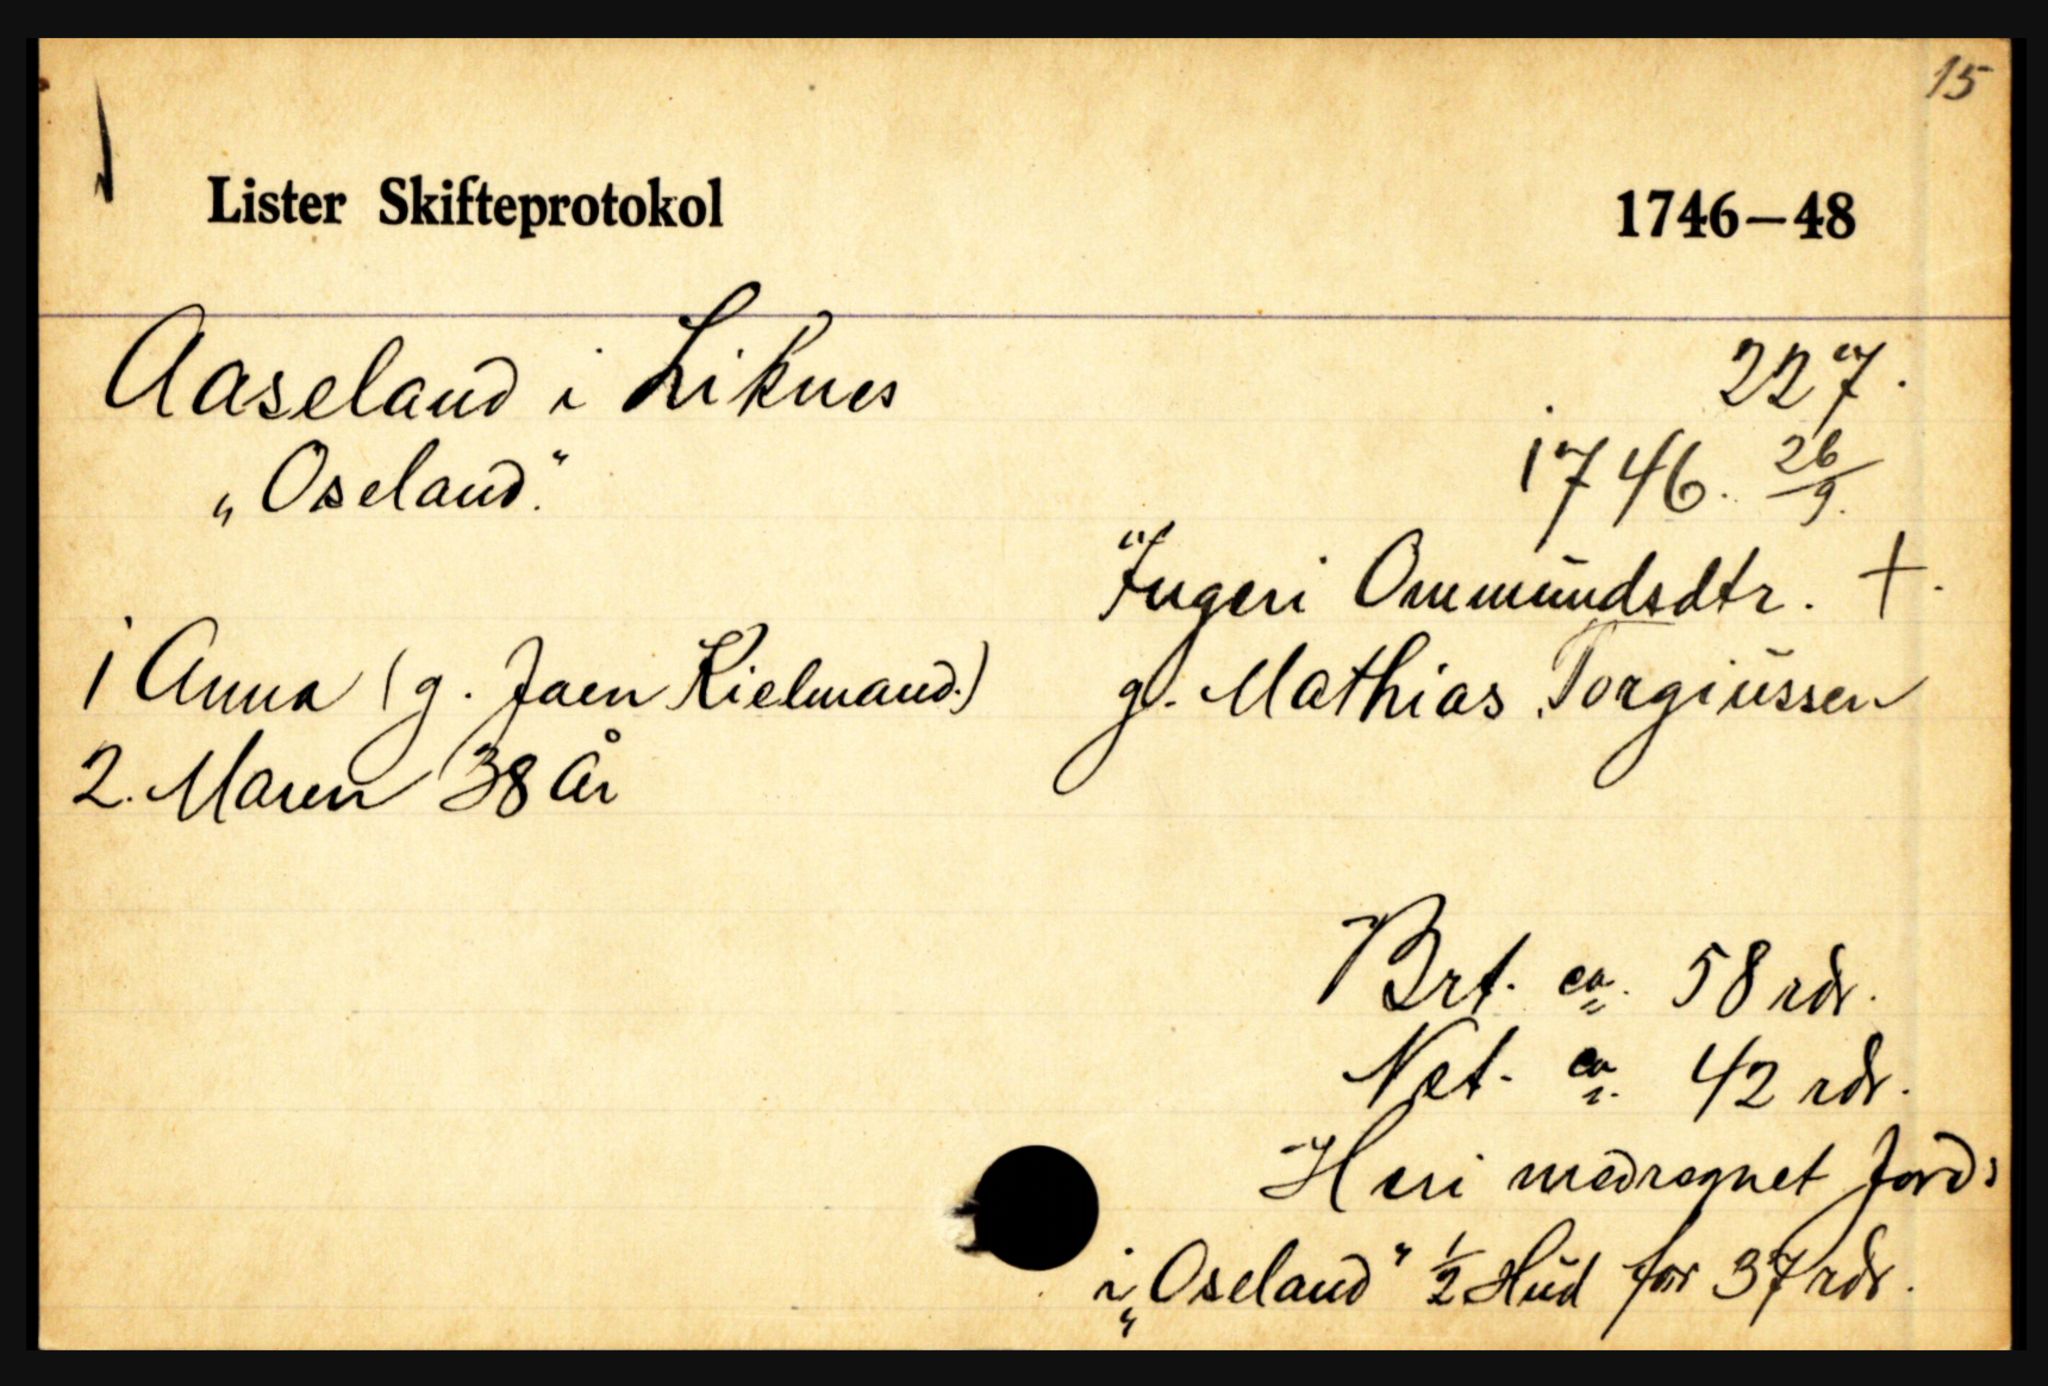 15
Lister Skifteprotokol 1746–48
Aaseland i Liknes 227.
„Oseland.“ 1746. 26/9.
Ingeri Ommundsdtr. +.
1 Anna (g. Jaen Kielmand.) g. Mathias Torgiussen
2. Maren 38 År
Brt. ca. 58 rdr.
Net. ca. 42 rdr.
Heri medregnet Jords
i „Oseland“ 1/2 Hud for 37 rdr.